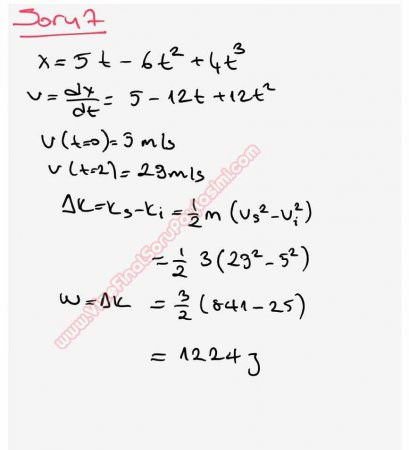 Soru 7
x = 5t - 6t² + 4t³
v = dx/dt = 5 - 12t + 12t²
v(t=0) = 5 m/s
v(t=2) = 29 m/s
ΔK = Ks - Ki = 1/2 m (vs² - vi²)
= 1/2 3 (29² - 5²)
W = ΔK = 3/2 (841 - 25)
= 1224 J
www.VizeFinalSoruPaylasimi.com